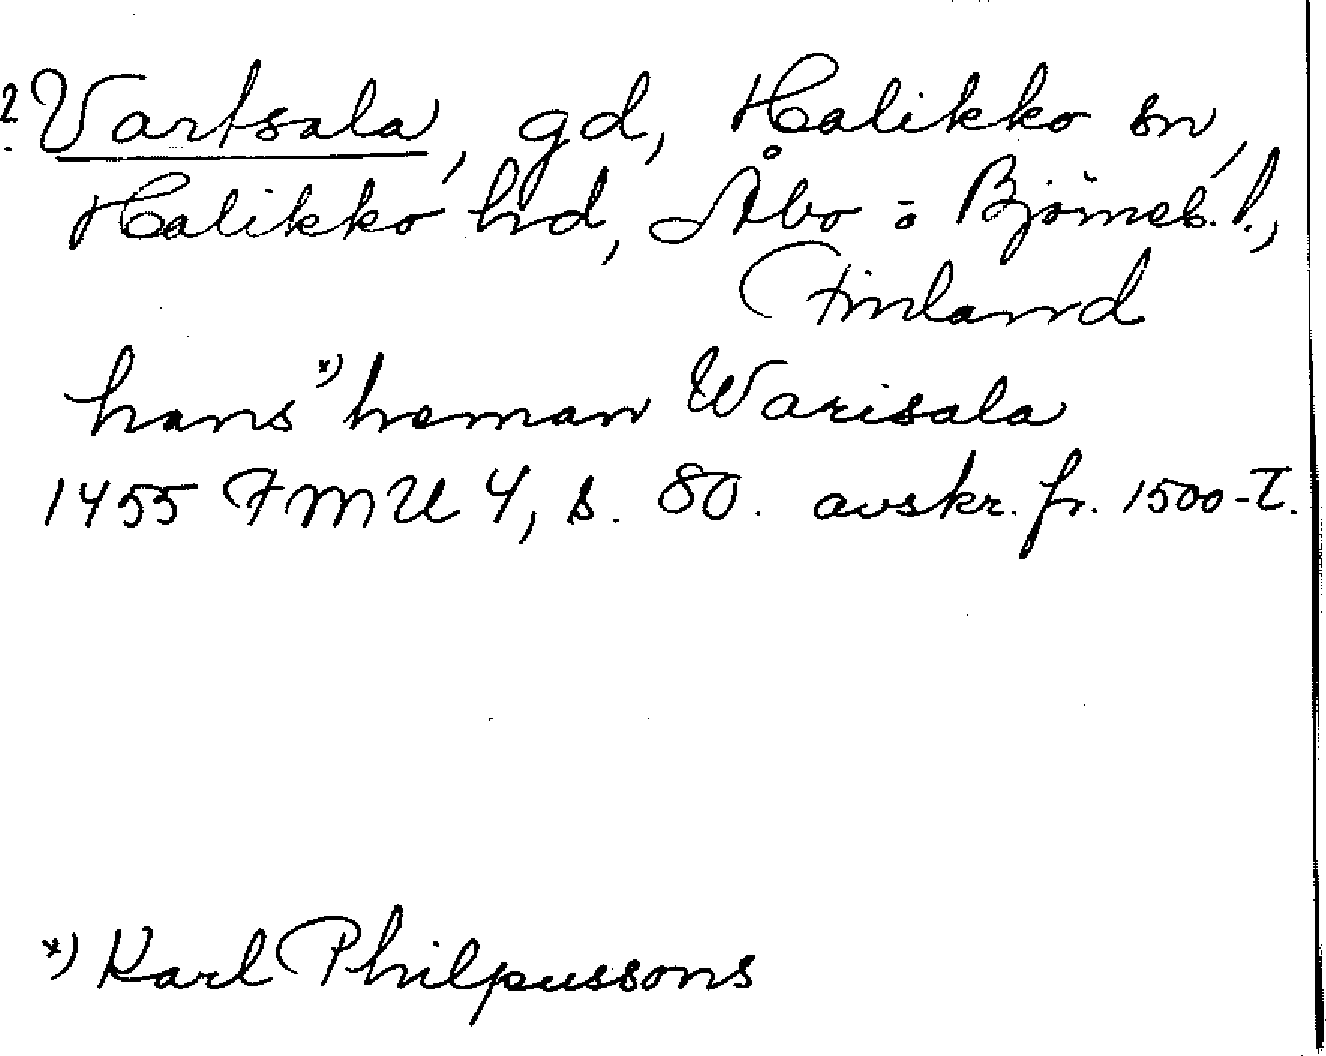 ? Vartsala, gd, Halikko sn,
Halikko hd, Åbo o Björneb. l.,
Finland
hans *) heman Warisala
1455 FMU 4, s. 80. avskr. fr. 1500-t.
*) Karl Philpussons